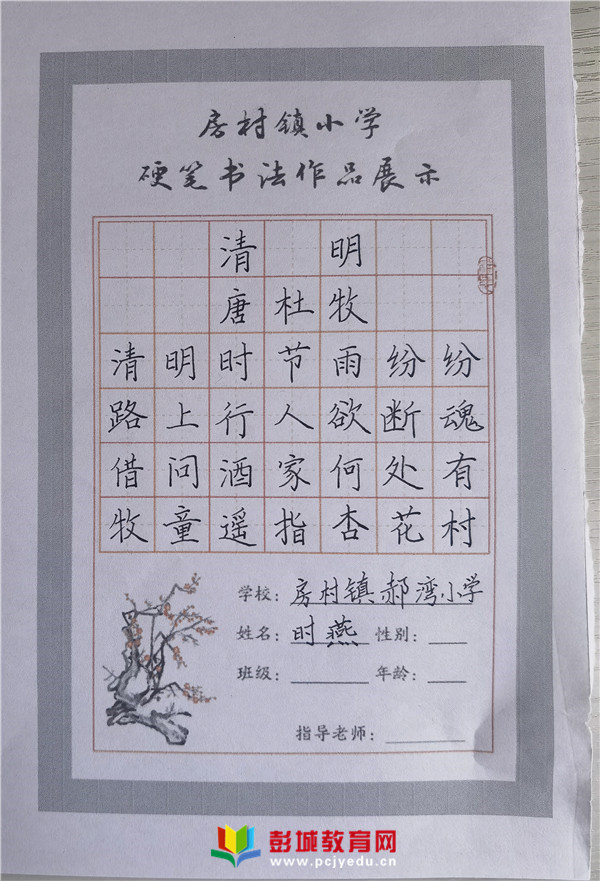 房村镇小学
硬笔书法作品展示
清明
唐杜牧
清明时节雨纷纷
路上行人欲断魂
借问酒家何处有
牧童遥指杏花村
学校：房村镇郝湾小学
姓名：时燕 性别：
班级： 年龄：
指导老师：
彭城教育网
www.pcjyedu.cn